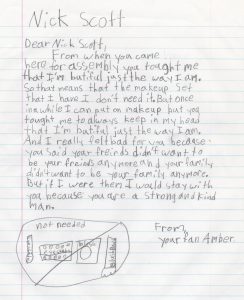 Nick Scott
Dear Nick Scott,
From when you came
here for assembly you tought me
that I'm butiful just the way I am.
So that means that the makeup set
that I have I don't need it. But once
in a while I can put on makeup but you
tought me to always keep in my head
that I'm butiful just the way I am.
And I really felt bad for you becase
you said your freinds didn't want to
be your freinds anymore and your family
didn't want to be your family anymore.
But if I were them I would stay with
you because you are a strong and kind
man.
not needed
From,
your fan Amber.